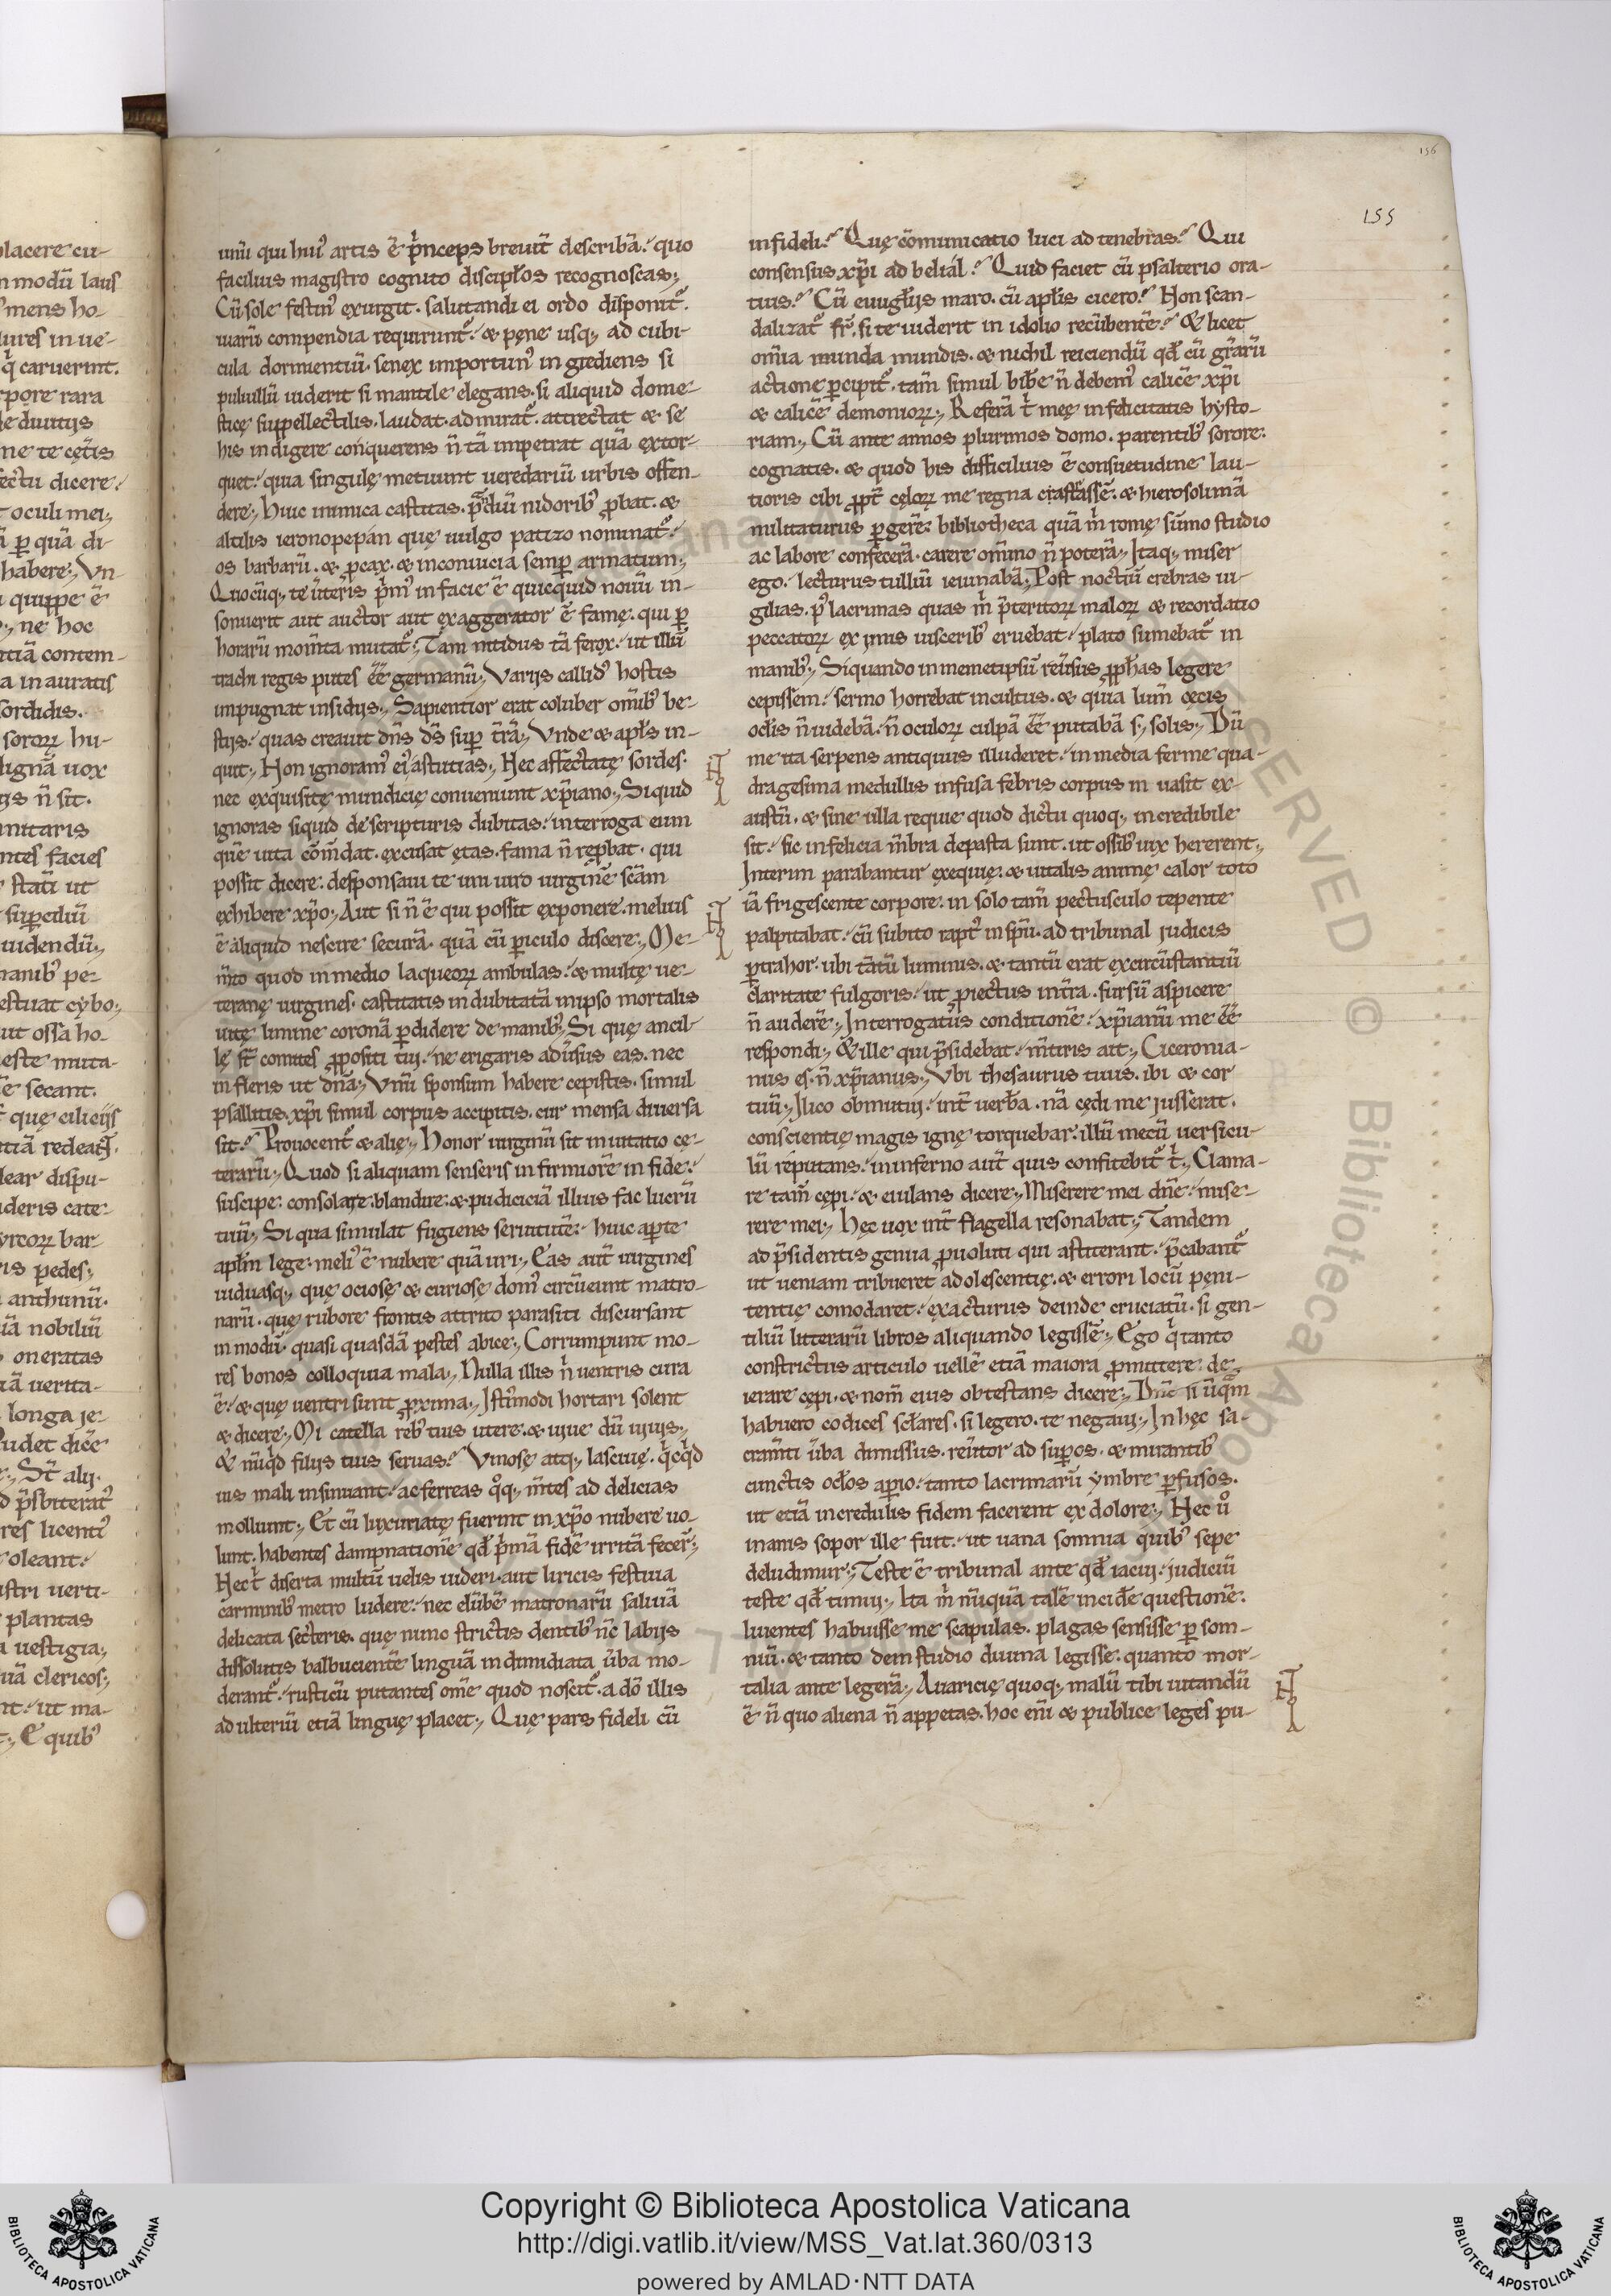 156
155
unũ qui huiꝰ artis ẽ p̃nceps breuit̃ describã. quo
facilius magistro cognito discipl̃os recognoscas;
Cũ sole festinꝰ exurgit. salutandi ei ordo disponit̃.
uiarũ compendia requirunt̃. & pęne usq; ad cubi-
cula dormientiũ. senex importunꝰ ingrediens si
puluillũ uiderit si mantile elegans. si aliquid dome-
sticę suppellectilis. laudat. admirat̃. attrectat & se
his indigere conquerens ñ tã impetrat quã extor-
quet. quia singulę metuunt ueredariũ urbis offen-
dere; Huic inimica castitas. p̃diũ nidoribꝰ ꝓbat. &
altilis ieronopepán que uulgo patizo nominat̃.
os barbarũ. & ꝓcax. & in conuicia semꝑ armatum;
Quocũq; te ũteris p̃mꝰ in facie ẽ quicquid nouũ in-
sonuerit aut auctor aut exaggerator ẽ famę. qui ꝑ
horarũ mom̃ta mutat̃; Tam nitidus tã ferox. ut illũ
trachi regis putes ẽẽ germanũ; Varijs callidꝰ hostis
impugnat insidijs; Sapientior erat coluber om̃ibꝰ be-
stijs. quas creauit dñs dš suꝑ t̃rã; Vnde & apl̃s in-
quit; Non ignoramꝰ eiꝰ astutias; Nec affectatę sordes.
nec exquisitę mundicię conueniunt xp̃iano; Si quid
ignoras siquid de scripturis dubitas. interroga eum
quẽ uita cõm̃dat. excusat ętas. fama ñ reꝓbat. qui
possit dicere. desponsaui te uni uiro uirginẽ sc̃am
exhibere xp̃o; Aut si ñ ẽ qui possit exponere. melius
ẽ aliquid nescire securã. quã cũ ꝑiculo discere; Me-
m̃to quod in medio laqueoꝝ ambulas. & multę ue-
teranę uirgines. castitatis indubitatã in ipso mortalis
uitę limine coronã ꝑdidere de manibꝰ; Si quę ancil-
lę st̃ comites ꝓpositi tui. ne erigaris adũsus eas. nec
infleris ut dñã; Vnũ sponsum habere cepistis. simul
psallitis. xp̃i simul corpus accipitis. cur mensa diuersa
sit? Prouocent̃ & alię; Honor uirginũ sit inuitatio cę-
terarũ; Quod si aliquam senseris infirmiorẽ in fide.
suscipe. consolare. blandire. & pudiciciã illius fac lucrũ
tuũ; Si qua simulat fugiens seruitutẽ. huic aꝑte
apl̃m lege. meliꝰ ẽ nubere quã uri; Eas aut̃ uirgines
uiduasq; quę ociosę & curiose domꝰ circũeunt matro-
narũ. quę rubore frontis attrito parasiti discursant
in modũ. quasi quasdã pestes abice; Corrumpunt mo-
res bonos colloquia mala; Nulla illis ñ uentris cura
ẽ. & quę uentri sunt ꝓxima; Istim̃odi hortari solent
& dicere; Mi catella rebꝰ tuis utere. & uiue dũ uiuis;
Et nũq̃d filijs tuis seruas? Vinose atq; lasciuę. q̃cq̃d
uis mali insinuant. ac ferreas q̊q; m̃tes ad delicias
molliunt; Et cũ luxuriatę fuerint in xp̃o nubere uo-
lunt. habentes dampnationẽ qd̃ p̃mã fidẽ irritã fecer̃;
Nec t̃ diserta multũ uelis uideri. aut liricis festiua
carminibꝰ metro ludere. nec elũbẽ matronarũ saliuã
delicata secteris. quę nunc strictis dentibꝰ ñc labijs
dissolutis balbucientẽ linguã in dimidiata ũba mo-
derant̃. rusticũ putantes om̃e quod noscit̃. a dõ illis
adulteriũ etiã linguę placet; Quę pars fideli cũ
infideli? Quę cõmunicatio luci ad tenebras? Qui
consensus xp̃i ad beliál? Quid faciet cũ psalterio ora-
tius? Cũ euugl̃ijs maro. cũ apl̃is cicero? Non scan-
dalizat̃ fr̃. si te uiderit in idolio recũbentẽ? & licet
om̃ia munda mundis. & nichil reiciendũ qd̃ cũ gr̃arũ
actione ꝑcipit̃. tam̃ simul bib̃e ñ debemꝰ calicẽ xp̃i
& calicẽ demonioꝝ; Referã t̃ meę infelicitatis hysto-
riam; Cũ ante annos plurimos domo. parentibꝰ sorore.
cognatis. & quod his difficilius ẽ consuetudine lau-
tioris cibi ꝓpt̃ cęloꝝ me regna castrassẽ. & hierosolimã
militaturus ꝑgerẽ. bibliotheca quã m̃ romę sũmo studio
ac labore confecerã. carere om̃ino ñ poterã; Itaq; miser
ego. lecturus tulliũ ieiunabã; Post noctiũ crebras ui-
gilias. pꝰ lacrimas quas m̃ p̃teritoꝝ maloꝝ & recordatio
peccatoꝝ ex imis uisceribꝰ eruebat. plato sumebat̃ in
manibꝰ; Siquando in memetipsũ reũsus ꝓph̃as legere
cepissem. sermo horrebat incultus. & quia lum̃ cęcis
ocl̃is ñ uidebã. ñ oculoꝝ culpã ẽẽ putabã s; solis; Dũ
me ita serpens antiquus illuderet. in media ferme qua-
dragesima medullis infusa febris corpus inuasit ex-
austũ. & sine ulla requie quod dictu quoq; incredibile
sit. sic infelicia m̃bra depasta sunt. ut ossibꝰ uix hererent;
Interim parabantur exequię. & uitalis animę calor toto
iã frigescente corpore. in solo tam̃ pectusculo tepente
palpitabat. cũ subito raptꝰ in sp̃u. ad tribunal judicis
ꝑtrahor. ubi tãtũ luminis. & tantũ erat ex circũstantiũ
claritate fulgoris. ut ꝓiectus in t̃ra. sursũ aspicere
ñ auderẽ; Interrogatus conditionẽ. xp̃ianũ me ẽẽ
respondi; & ille qui p̃sidebat. m̃tiris ait; Ciceronia-
nus es. ñ xp̃ianus; Vbi thesaurus tuus. ibi & cor
tuũ; Ilico obmutui. int̃ uerb̃a. nã cędi me jusserat.
conscientię magis igne torquebar. illũ mecũ uersicu-
lũ reputans. in inferno aut̃ quis confitebit̃ t̃; Clama-
re tam̃ cępi. & eiulans dicere; Miserere mei dñe. mise-
rere mei; Hęc uox int̃ flagella resonabat; Tandem
ad p̃sidentis genua ꝓuoluti qui astiterant. p̃cabant̃
ut ueniam tribueret adolescentię. & errori locũ pęni-
tentię comodaret. exacturus deinde cruciatũ. si gen-
tiliũ litterarũ libros aliquando legissẽ; Ego q̃ tanto
constrictus articulo uellẽ etiã maiora ꝓmittere. de-
ierare cępi. & nom̃ eius obtestans dicere; Dñe si ũq̃m
habuero codices scl̃ares. si legero. te negaui; In hęc sa-
cram̃ti ũba dimissus. reũtor ad suꝑos. & mirantibꝰ
cunctis ocl̃os aꝑio. tanto lacrimarũ ymbre ꝑfusos.
ut etiã incredulis fidem facerent ex dolore; Nec ů
inanis sopor ille fuit. ut uana somnia quibꝰ sepe
deludimur; Teste ẽ tribunal ante qd̃ iacui. judiciũ
teste qd̃ timui; Ita m̃ nũquã talẽ incid̃e questionẽ.
liuentes habuisse me scapulas. plagas sensisse ꝑ som-
niũ. & tanto dein studio diuina legisse. quanto mor-
talia ante legerã; Auaricię quoq; malũ tibi uitandũ
ẽ ñ quo aliena ñ appetas. hoc eñi & publice leges pu-
Copyright © Biblioteca Apostolica Vaticana
http://digi.vatlib.it/view/MSS_Vat.lat.360/0313
powered by AMLAD·NTT DATA
BIBLIOTECA APOSTOLICA VATICANA
BIBLIOTECA APOSTOLICA VATICANA